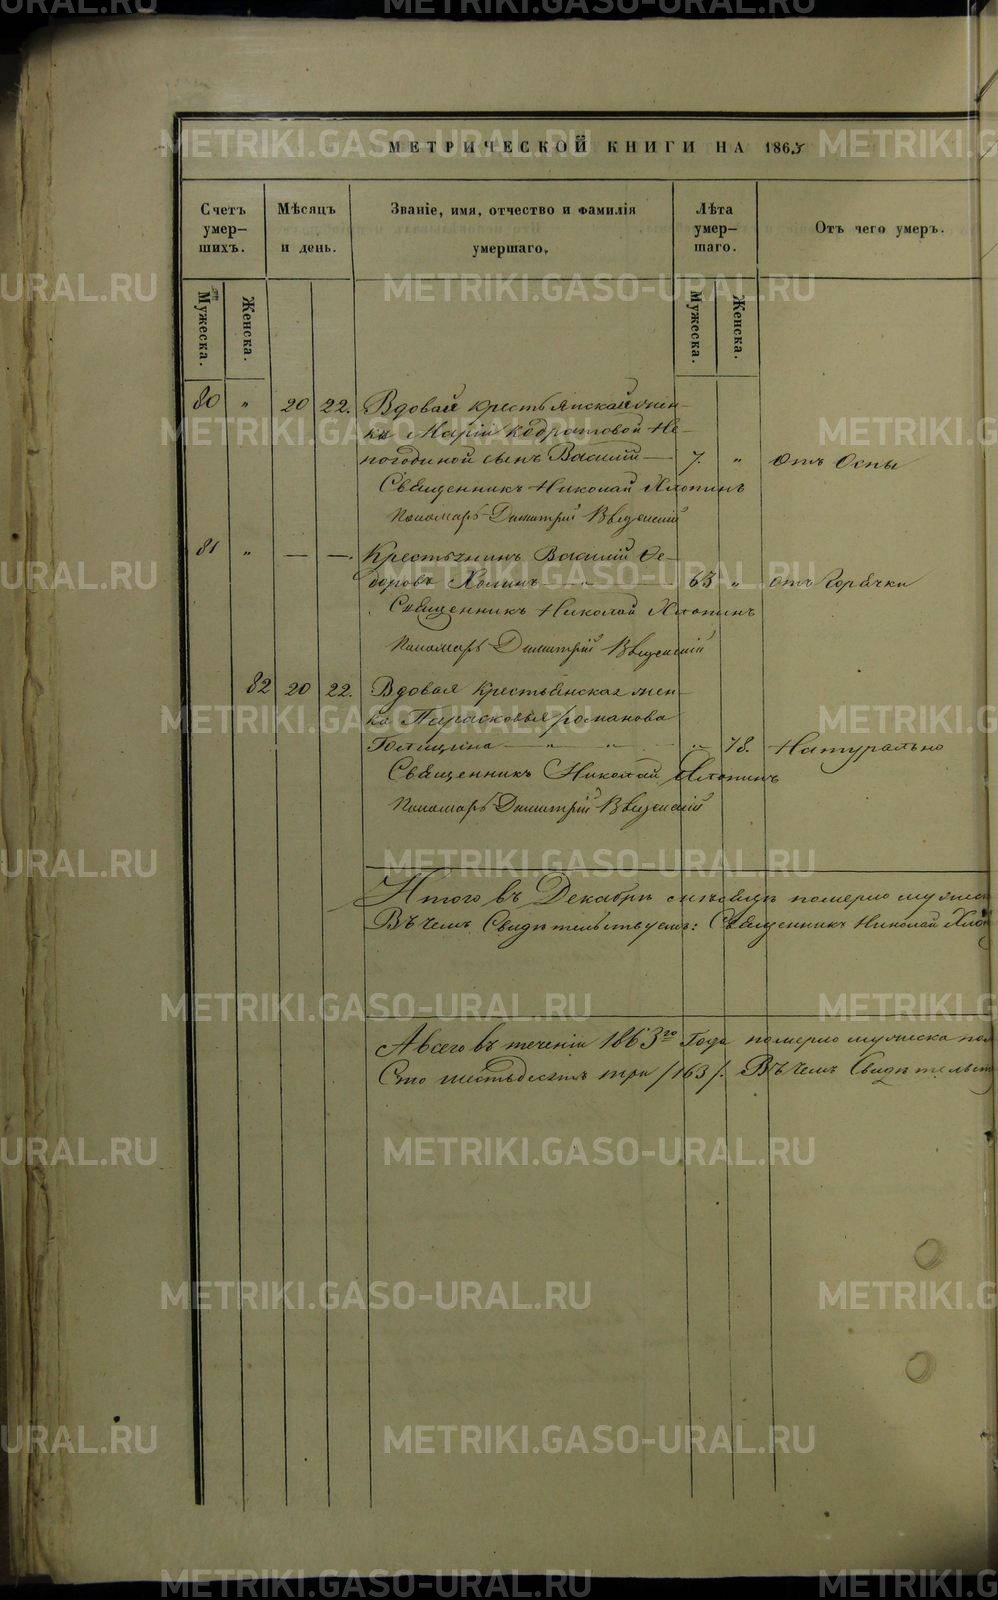 МЕТРИЧЕСКОЙ КНИГИ НА 1863
Счетъ умер-шихъ. Мѣсяцъ и день. Званіе, имя, отчество и фамилія умершаго. Лѣта умер-шаго. Отъ чего умеръ.
Мужеска. Женска. Мужеска. Женска.
80 " 20 22. Вдовай крестьянской жен-
ки Маріи Кодратовой Не-
погодиной сынъ Василій 7. " Отъ Оспы
Священникъ Николай Хлопинъ
Пономарь Димитрій Введенскій
81 " — —. Крестьянинъ Василій Ѳе-
доровъ Холинъ " 63 " отъ Горячки
Священникъ Николай Хлопинъ
Пономарь Димитрій Введенскій
82 20 22. Вдовая Крестьянская жен-
ка Парасковья романова
Голицина " " " 78. Натурально
Священникъ Николай Хлопинъ
Пономарь Димитрій Введенскій
Итого въ Декабрѣ мѣсяцѣ померло мужеск
Въ чемъ Свидѣтельствуемъ: Священникъ Николай Хлоп
А всего въ теченіи 1863го Года померло мужеска пол
Сто шестьдесятъ три /163/. Въ чемъ Свидѣтельст
METRIKI.GASO-URAL.RU